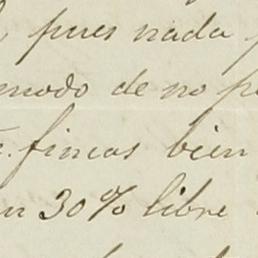 , pues nada
modo de no p
fincas bien
un 30% libre